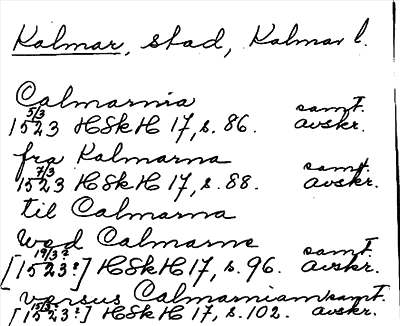 Kalmar, stad, Kalmar l.
Calmarnia
5/3 1523 HSkH 17, s. 86. samt. avskr.
fra Kalmarna
7/3 1523 HSkH 17, s. 88. samt. avskr.
til Calmarna
wed Calmarne
19/3? [1523?] HSkH 17, s. 96. samt. avskr.
versus Calmarniam
[1523?] HSkH 17, s. 102. samt. avskr.